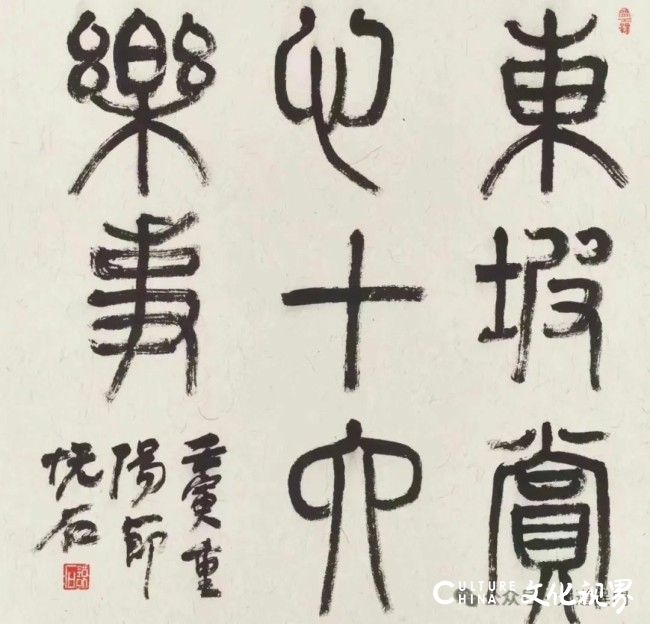 東坡賞
心十六
樂事
壬寅重
陽節
石
CULTURE
CHINA
文化视界